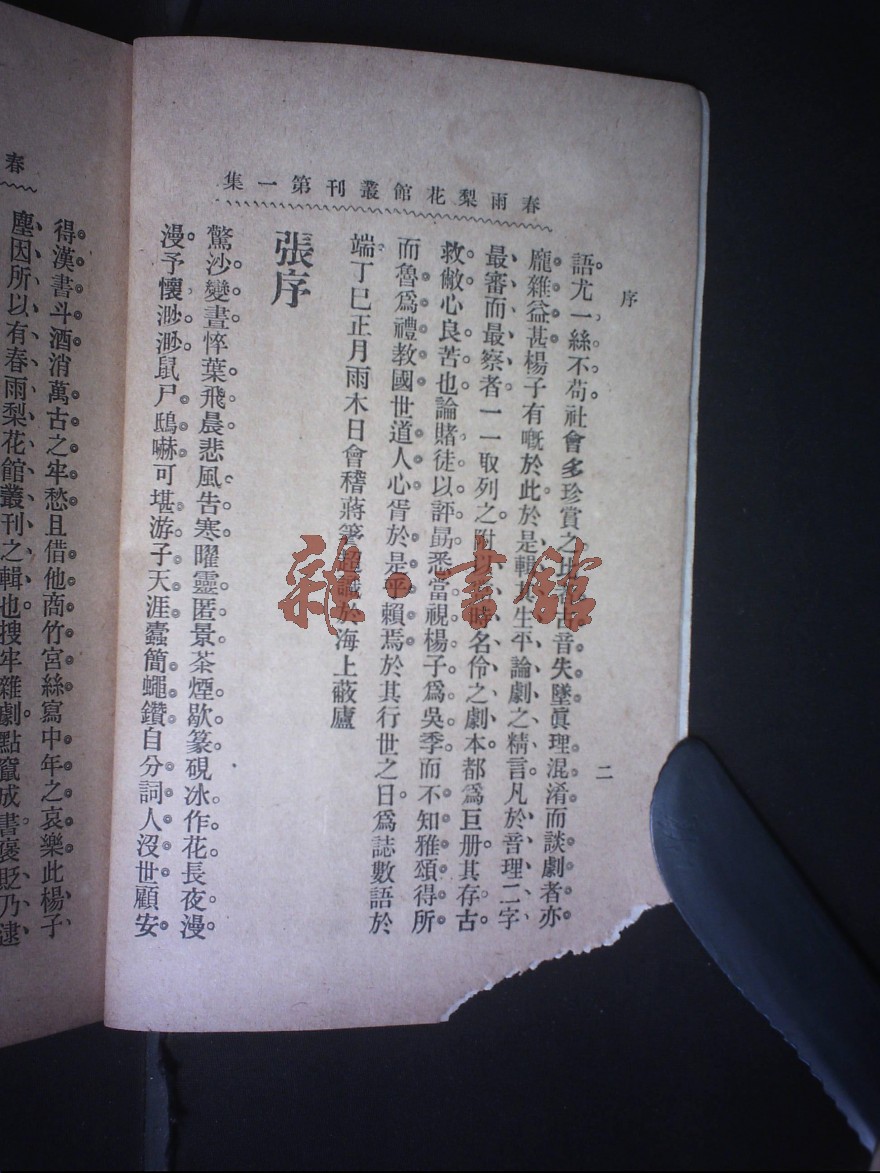 春雨梨花館叢刊第一集
序
二
語尤一絲不苟社會多珍賞之比者古音失墜眞理混淆而談劇者亦
龐雜益甚楊子有嘅於此於是輯其生平論劇之精言凡於音理二字
最審而最察者一一取列之附以時名伶之劇本都爲巨册其存古
救敝心良苦也論賭徒以評勗悉當視楊子爲吳季而不知雅頌得所
而魯爲禮敎國世道人心胥於是乎賴焉於其行世之日爲誌數語於
端丁巳正月雨木日會稽蔣箸超識於海上蔽廬
張序
驚沙變晝悴葉飛晨悲風吿寒曜靈匿景茶煙歇篆硯冰作花長夜漫
漫予懷渺渺鼠尸鴟嚇可堪游子天涯蠹簡蠅鑽自分詞人沒世顧安
春
得漢書斗酒消萬古之牢愁且借他商竹宮絲寫中年之哀樂此楊子
塵因所以有春雨梨花館叢刊之輯也搜牢雜劇點竄成書褒貶乃逮
雜·書館